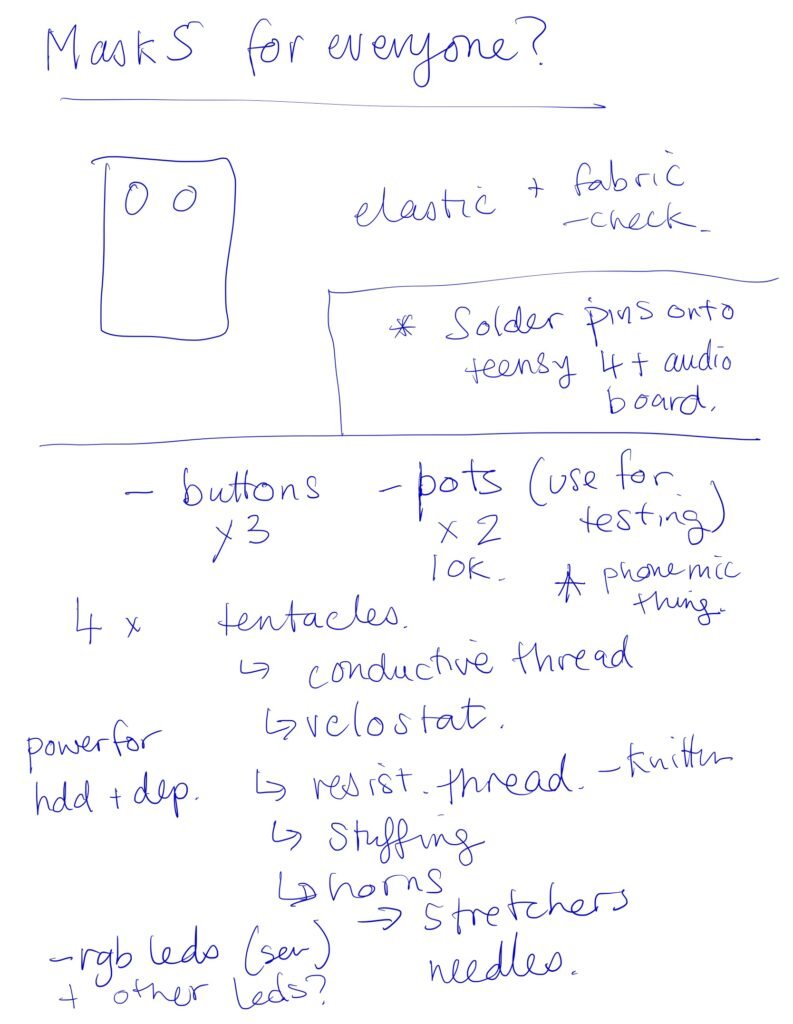 Masks for everyone?
elastic + fabric
- check.
* Solder pins onto
teensy 4 + audio
board.
- buttons
x 3
- pots (use for
testing)
x 2
10k.
* phonemic
thing.
4 x tentacles.
↳ conductive thread
↳ velostat.
power for
hdd + dep.
↳ resist. thread. - knitter
↳ stuffing
↳ horns
→ stretchers
needles.
- rgb leds (sew)
+ other leds?